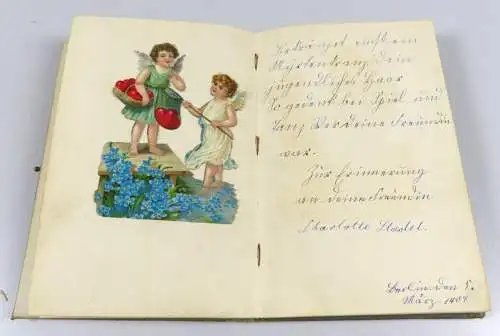 Beträgst einst ein
Myrtenkranz Dein
jugendliches Haar
So gedenk bei Spiel und
Tanz Wer deine Freundin
war.
Zur Erinnerung
an deine Freundin
Charlotte
Berlin den 5.
März 1909